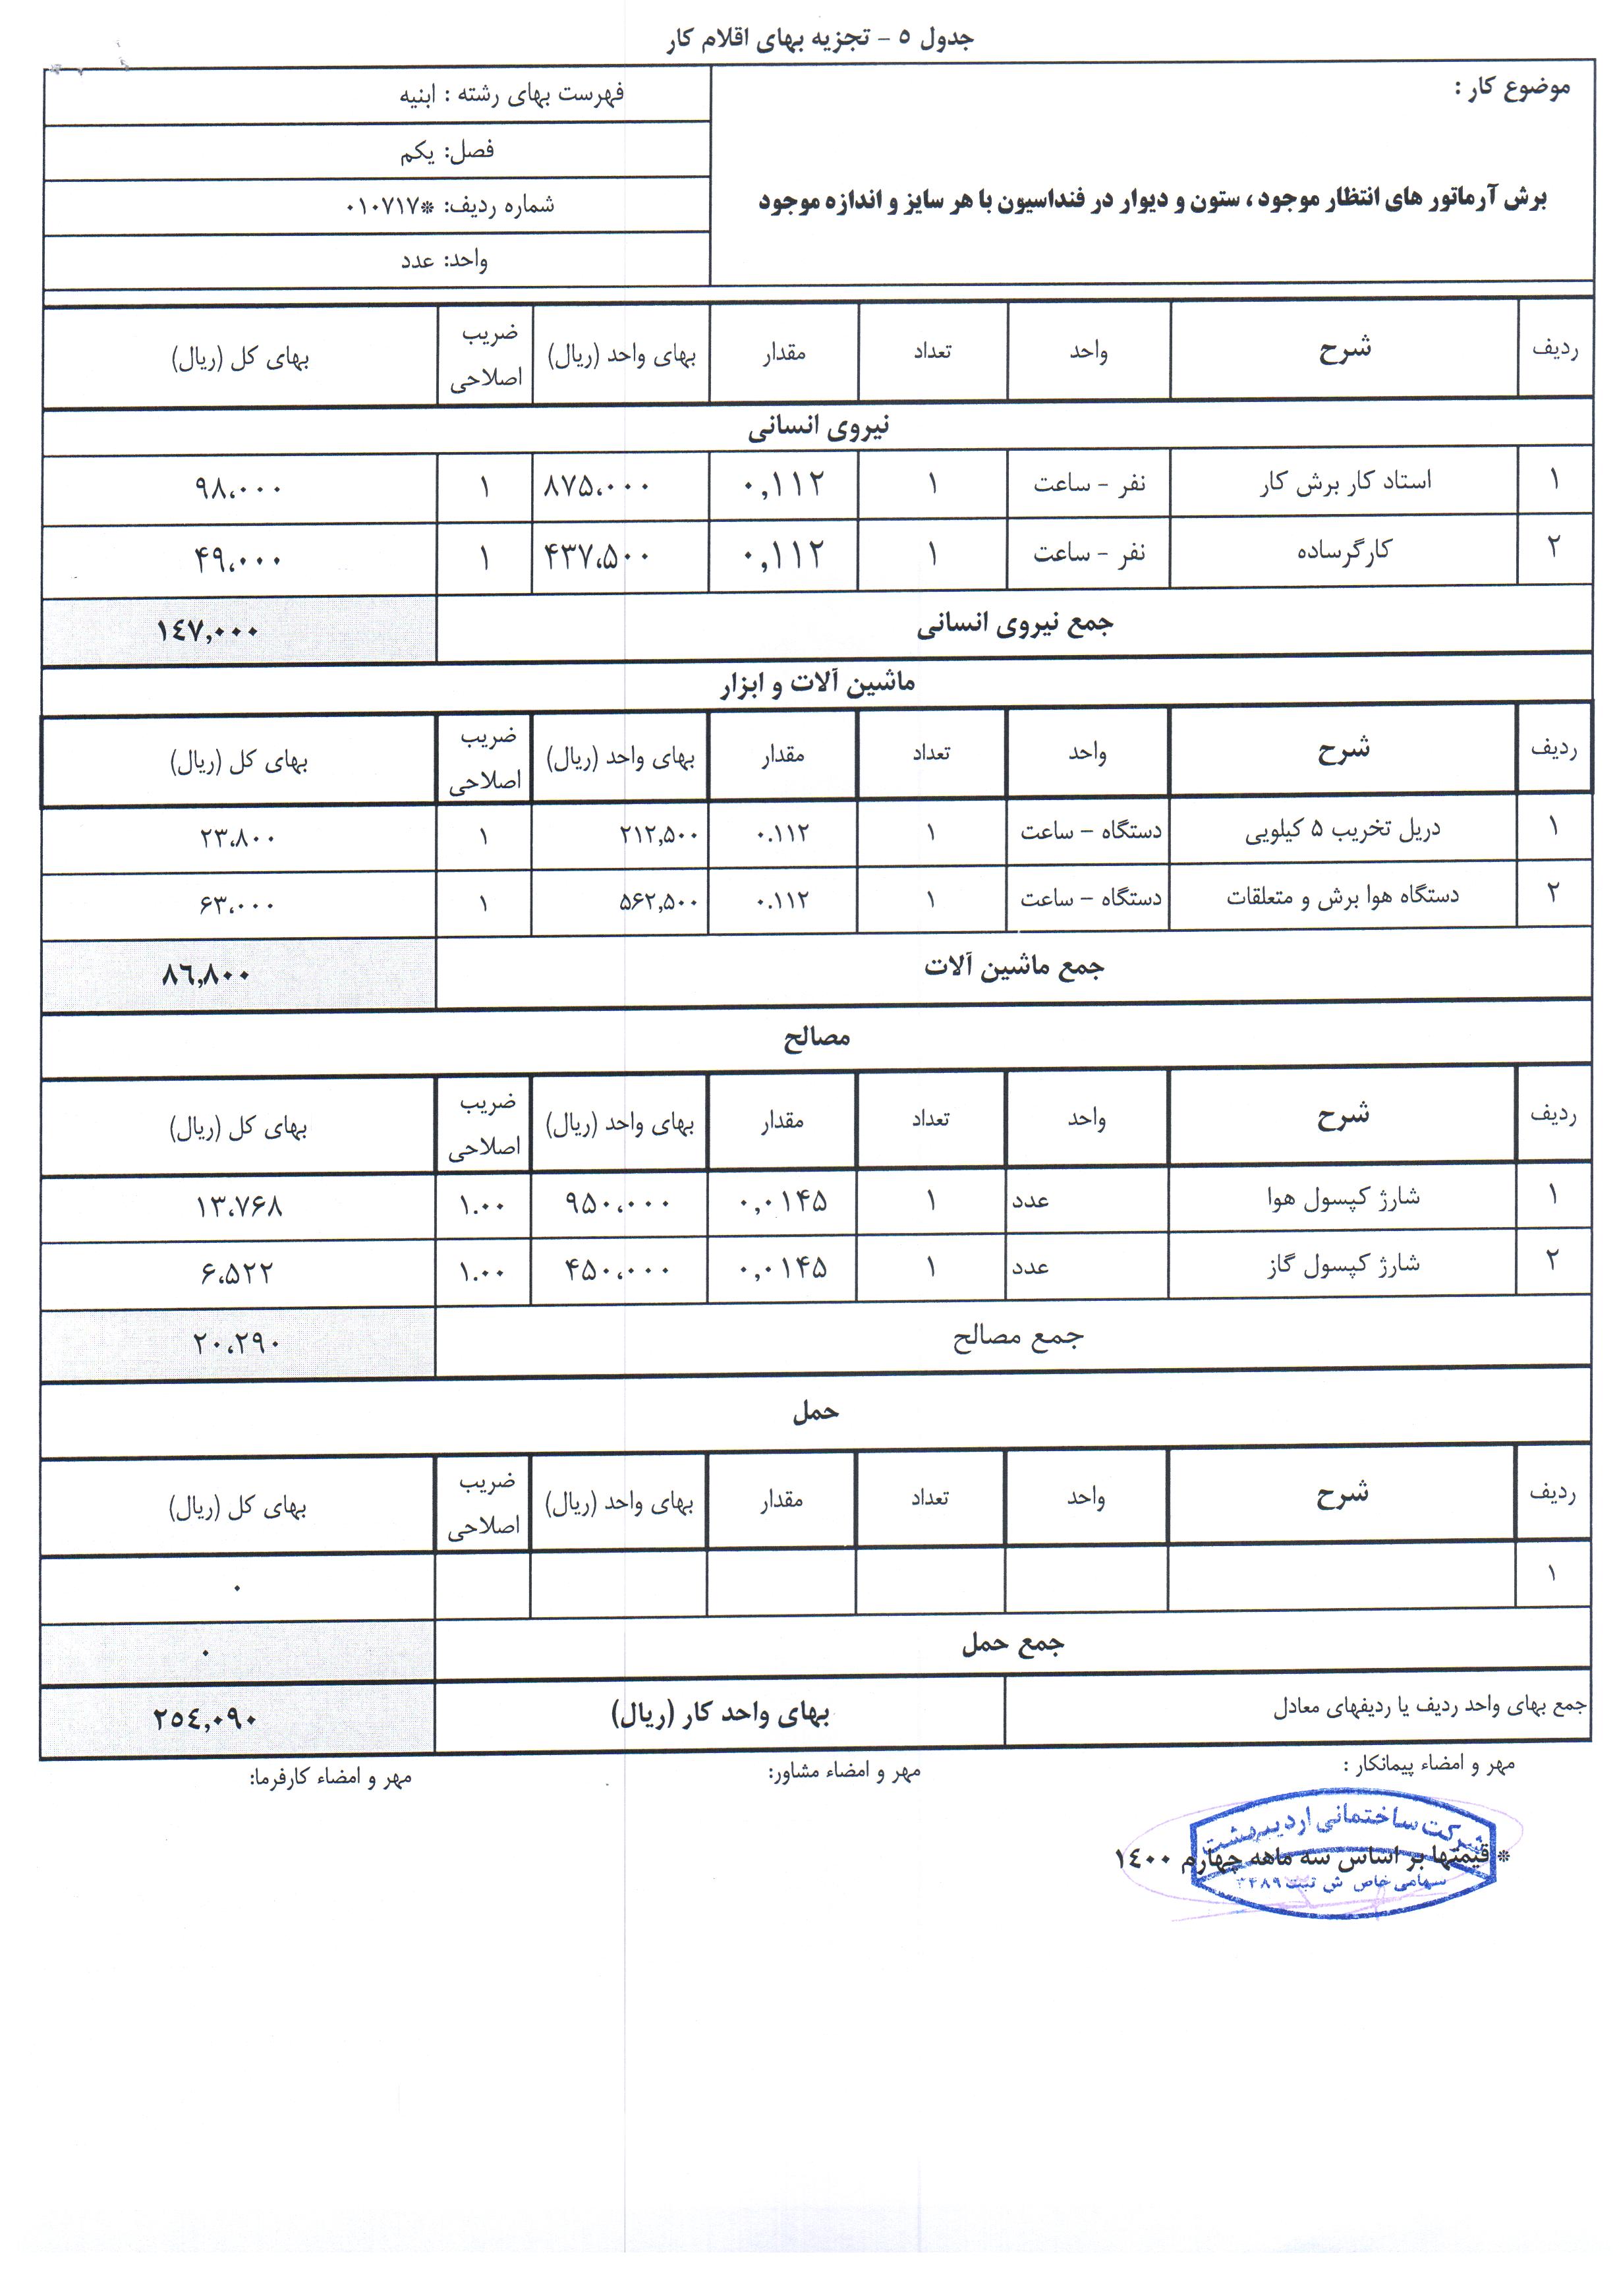 جدول ۵ - تجزیه بهای اقلام کار
موضوع کار :
برش آرماتور های انتظار موجود ، ستون و دیوار در فنداسیون با هر سایز و اندازه موجود
فهرست بهای رشته : ابنیه
فصل: یکم
شماره ردیف: *۰۱۰۷۱۷
واحد: عدد
ردیف شرح واحد تعداد مقدار بهای واحد (ریال) ضریب اصلاحی بهای کل (ریال)
نیروی انسانی
۱ استاد کار برش کار نفر - ساعت ۱ ۰,۱۱۲ ۸۷۵،۰۰۰ ۱ ۹۸،۰۰۰
۲ کارگرساده نفر - ساعت ۱ ۰,۱۱۲ ۴۳۷،۵۰۰ ۱ ۴۹،۰۰۰
جمع نیروی انسانی ١٤٧,٠٠٠
ماشین آلات و ابزار
ردیف شرح واحد تعداد مقدار بهای واحد (ریال) ضریب اصلاحی بهای کل (ریال)
۱ دریل تخریب ۵ کیلویی دستگاه - ساعت ۱ ۰.۱۱۲ ۲۱۲,۵۰۰ ۱ ۲۳،۸۰۰
۲ دستگاه هوا برش و متعلقات دستگاه - ساعت ۱ ۰.۱۱۲ ۵۶۲,۵۰۰ ۱ ۶۳،۰۰۰
جمع ماشین آلات ٨٦,٨٠٠
مصالح
ردیف شرح واحد تعداد مقدار بهای واحد (ریال) ضریب اصلاحی بهای کل (ریال)
۱ شارژ کپسول هوا عدد ۱ ۰,۰۱۴۵ ۹۵۰،۰۰۰ ۱.۰۰ ۱۳،۷۶۸
۲ شارژ کپسول گاز عدد ۱ ۰,۰۱۴۵ ۴۵۰،۰۰۰ ۱.۰۰ ۶،۵۲۲
جمع مصالح ۲۰،۲۹۰
حمل
ردیف شرح واحد تعداد مقدار بهای واحد (ریال) ضریب اصلاحی بهای کل (ریال)
۱ ۰
جمع حمل ۰
جمع بهای واحد ردیف یا ردیفهای معادل بهای واحد کار (ریال) ٢٥٤,٠٩٠
مهر و امضاء پیمانکار : مهر و امضاء مشاور: مهر و امضاء کارفرما:
شرکت ساختمانی اردیبهشت
* قیمتها بر اساس سه ماهه چهارم ١٤٠٠
سهامی خاص ش ثبت